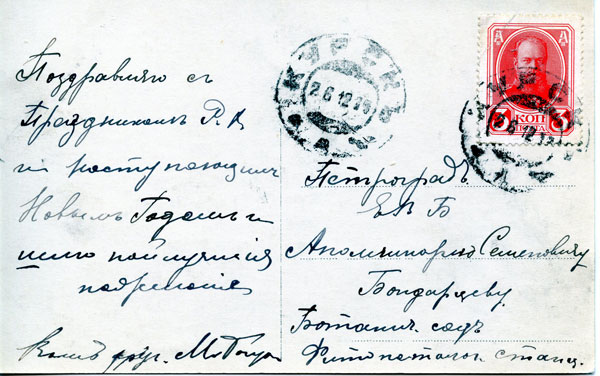 Поздравляю с
Праздникомъ Р. Х
и наступающим
Новымъ Годомъ и
шлю наилучшія
пожеланія
КУРСКЪ
26 12 15
3 КОП 3
КУРСКЪ
26 12 15
Петроградъ
ЕВБ
Аполлинарію Семеновичу
Бондарцеву
Ботанич. садъ
Фитопатолог. станц.